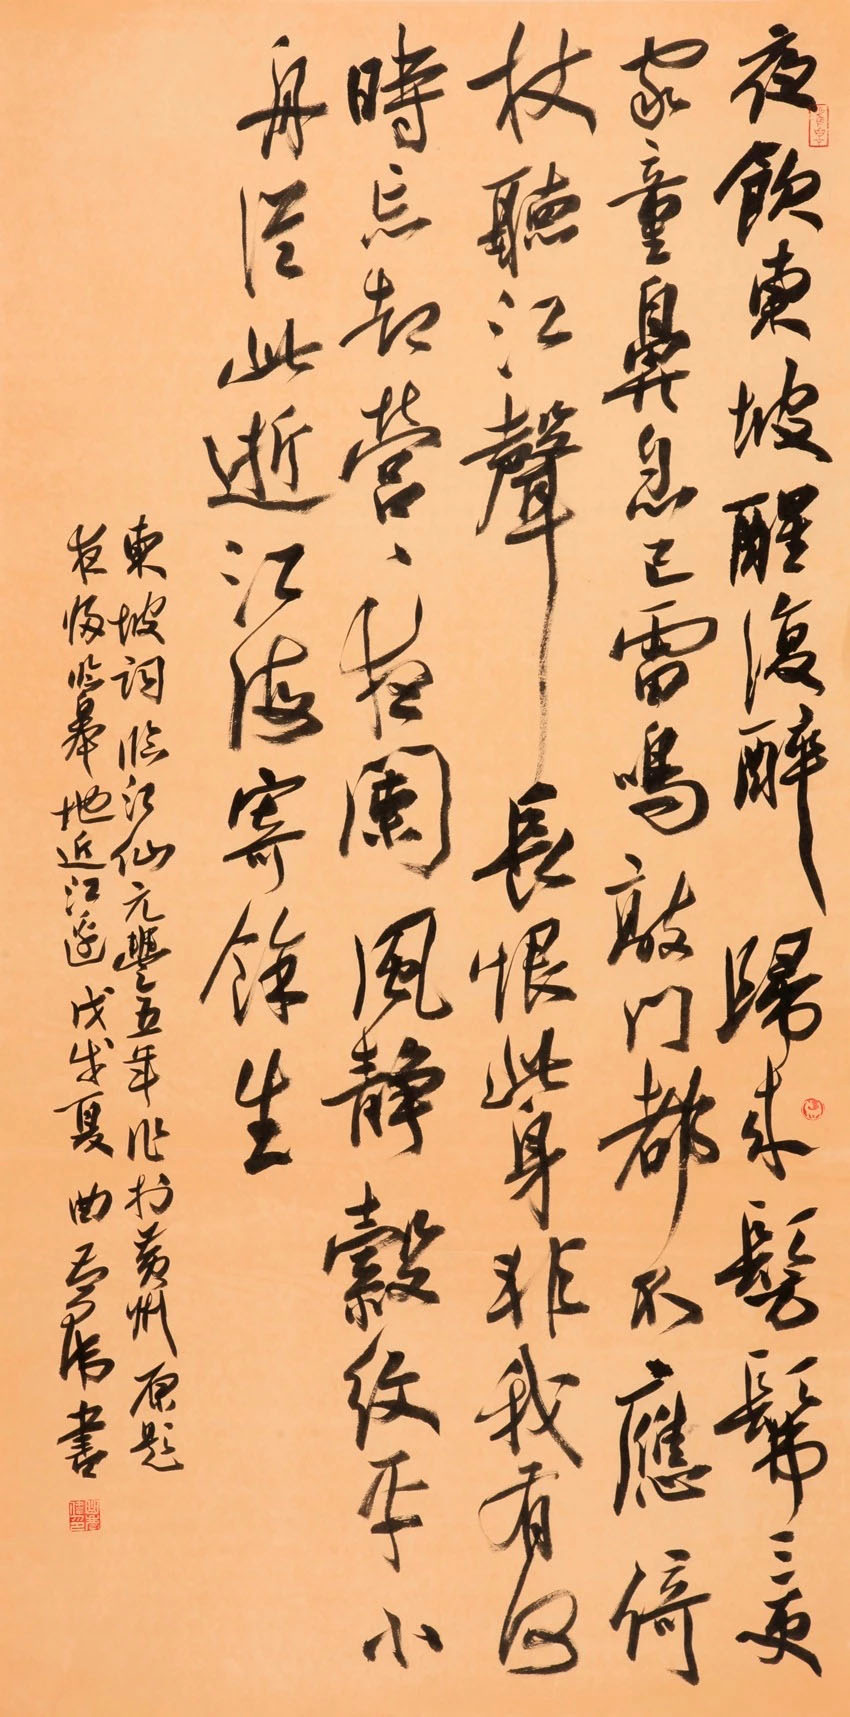 夜飲東坡醒復醉歸来髣髴三更
家童鼻息已雷鳴敲门都不應倚
杖聽江聲長恨此身非我有何
時忘却營〻夜闌風静縠纹平小
舟從此逝江海寄餘生
東坡詞臨江仙元豐五年作於黄州原題
夜归临皋地近江边戊戌夏曲
書